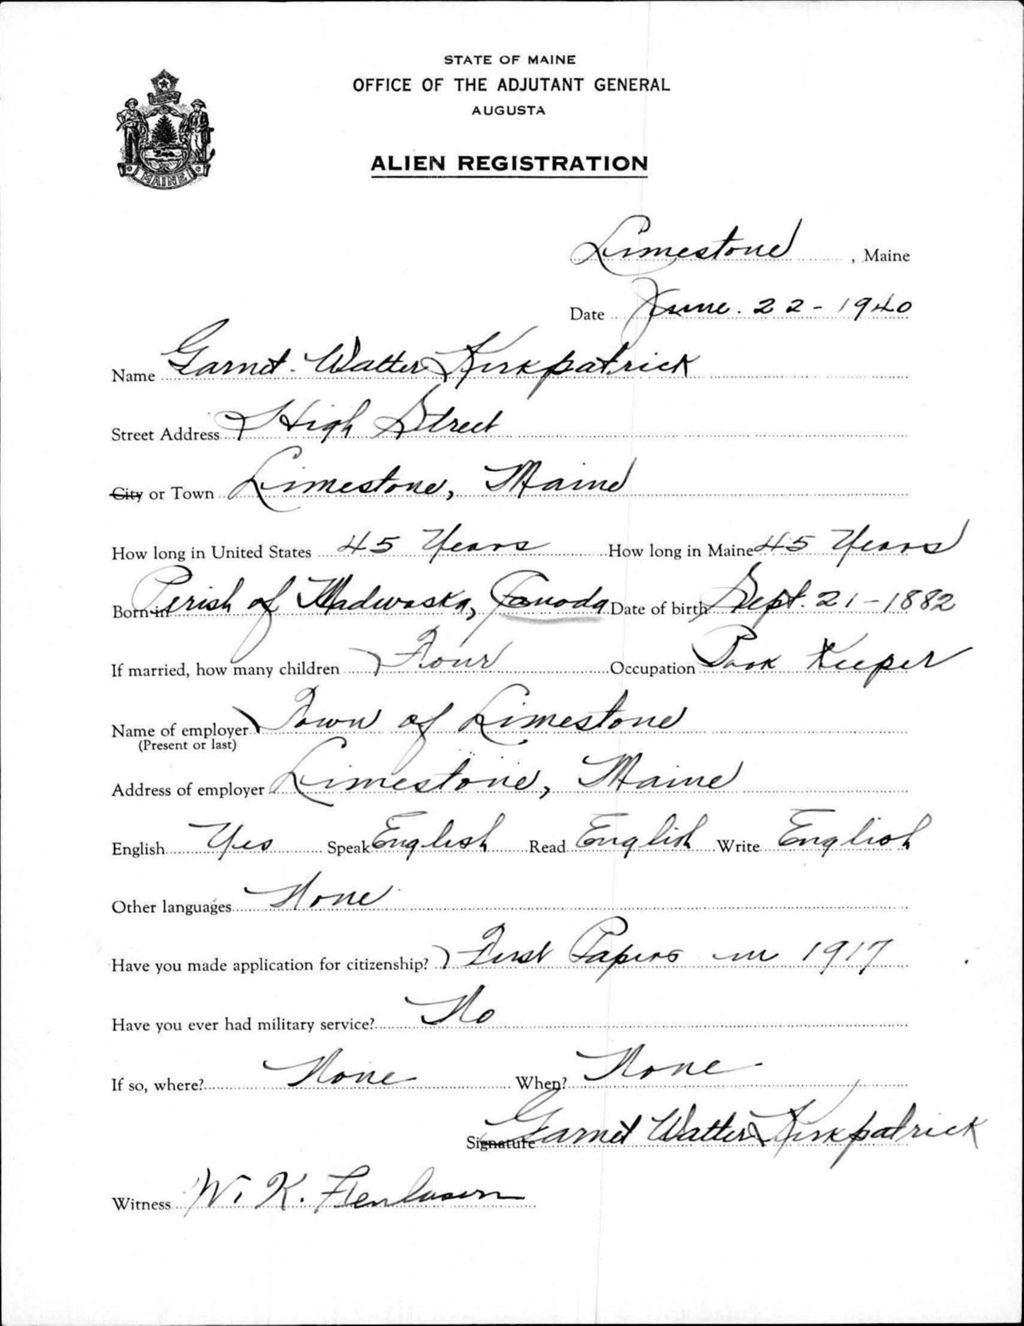 STATE OF MAINE
OFFICE OF THE ADJUTANT GENERAL
AUGUSTA
MAINE
ALIEN REGISTRATION
Limestone, Maine
Date June. 22-1940
Name Garnet Walter Kirkpatrick
Street Address High Street
City or Town Limestone, Maine
How long in United States 45 Years How long in Maine 45 Years
Born in Perish of Madwaska, Canada Date of birth Sept. 21-1882
If married, how many children Four Occupation Book Keeper
Name of employer Town of Limestone
(Present or last)
Address of employer Limestone, Maine
English Yes Speak English Read English Write English
Other languages None
Have you made application for citizenship? First Papers in 1917
Have you ever had military service? No
If so, where? None When? None
Signature Garnet Walter Kirkpatrick
Witness W. K.